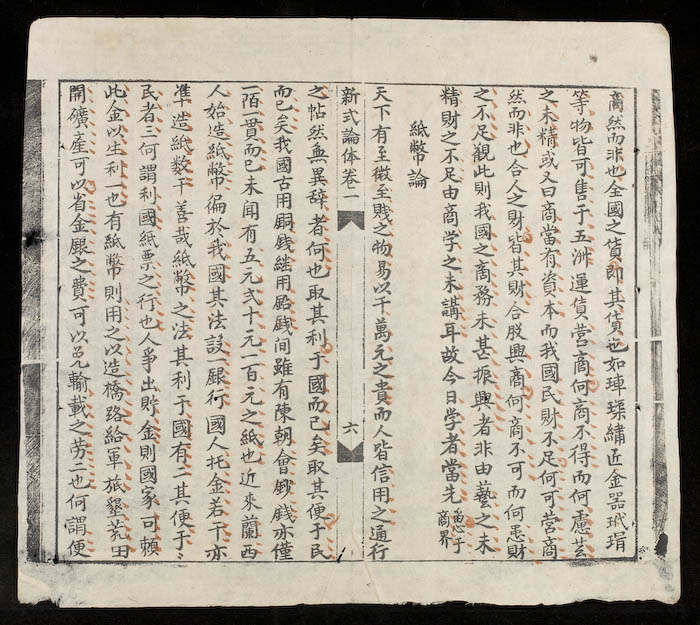 商然而非也全國之貨即其貨也如琿璖繡匠金器玳瑁
等物皆可售于五洲運貨营商何商不得而何慮芸
之未精或又曰商當有資本而我國民財不足何可营商
然而非也合人之財皆其財合股興商何商不可而何患財
之不足觀此則我國之商務未甚振興者非由藝之未
精財之不足由商学之未講耳故今日学者當先于商界
紙幣論
天下有至微至賤之物易以千萬元之貴而人皆信用之通行
新式論体卷一 六
之帖然無異辞者何也取其利于國而已矣取其便于民
而已矣我國古用銅錢継用鉛錢間雖有陳朝會鈔錢亦僅
一陌一貫而已未聞有五元弍十元一百元之紙也近來蘭西
人始造紙幣徧於我國其法設一銀行國人托金若干亦
準造紙数干善哉紙幣之法其利于國有二其便于〻
民者三何謂利國紙票之行也人爭出貯金則國家可賴
此金以生利一也有紙幣則用之以造橋路給軍旅墾荒田
開礦産可以省金銀之費可以免輸載之劳二也何謂便